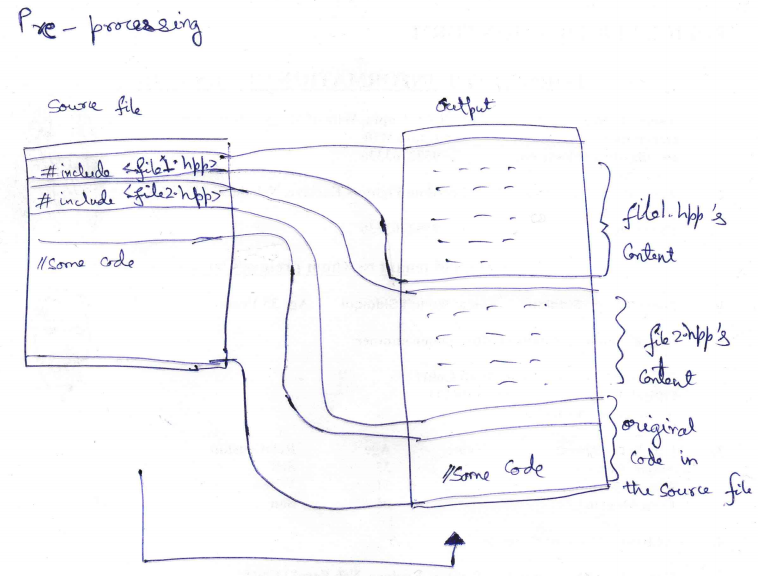 Pre-processing
Source file
#include <file1.hpp>
#include <file2.hpp>
//some code
output
file1.hpp's
Content
file2.hpp's
Content
//Some Code
original
code in
the source file